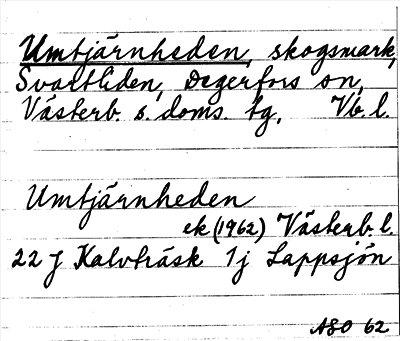 Umtjärnheden, skogsmark,
Svartliden, Degerfors sn,
Västerb. s. doms. tg. Vb. l.
Umtjärnheden
ek (1962) Västerb. l.
22 J Kalvträsk 1j Lappsjön
ASO 62